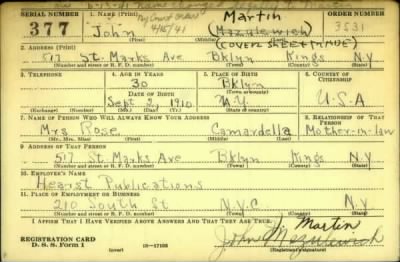 SERIAL NUMBER 1. NAME (Print) ORDER NUMBER
377 John Martin 3531
By Court Order 4/15/41 (Mazulewich)
(COVER SHEET MADE)
(First) (Middle) (Last)
2. ADDRESS (Print)
517 St. Marks Ave Bklyn Kings N.Y
(Number and street or R. F. D. number) (Town) (County) (State)
3. TELEPHONE 4. AGE IN YEARS 5. PLACE OF BIRTH 6. COUNTRY OF CITIZENSHIP
30 Bklyn
DATE OF BIRTH (Town or county)
Sept 2 1910 N.Y. U.S.A
(Exchange) (Number) (Mo.) (Day) (Yr.) (State or country)
7. NAME OF PERSON WHO WILL ALWAYS KNOW YOUR ADDRESS 8. RELATIONSHIP OF THAT PERSON
Mrs Rose Camardella Mother-in-law
(Mr., Mrs., Miss) (First) (Middle) (Last)
9. ADDRESS OF THAT PERSON
517 St. Marks Ave Bklyn Kings N.Y
(Number and street or R. F. D. number) (Town) (County) (State)
10. EMPLOYER'S NAME
Hearst Publications
11. PLACE OF EMPLOYMENT OR BUSINESS
210 South St N.Y.C N.Y
(Number and street or R. F. D. number) (Town) (County) (State)
I AFFIRM THAT I HAVE VERIFIED ABOVE ANSWERS AND THAT THEY ARE TRUE.
Martin
REGISTRATION CARD John Mazulewich
D. S. S. Form 1 (over) 16—17105 (Registrant's signature)